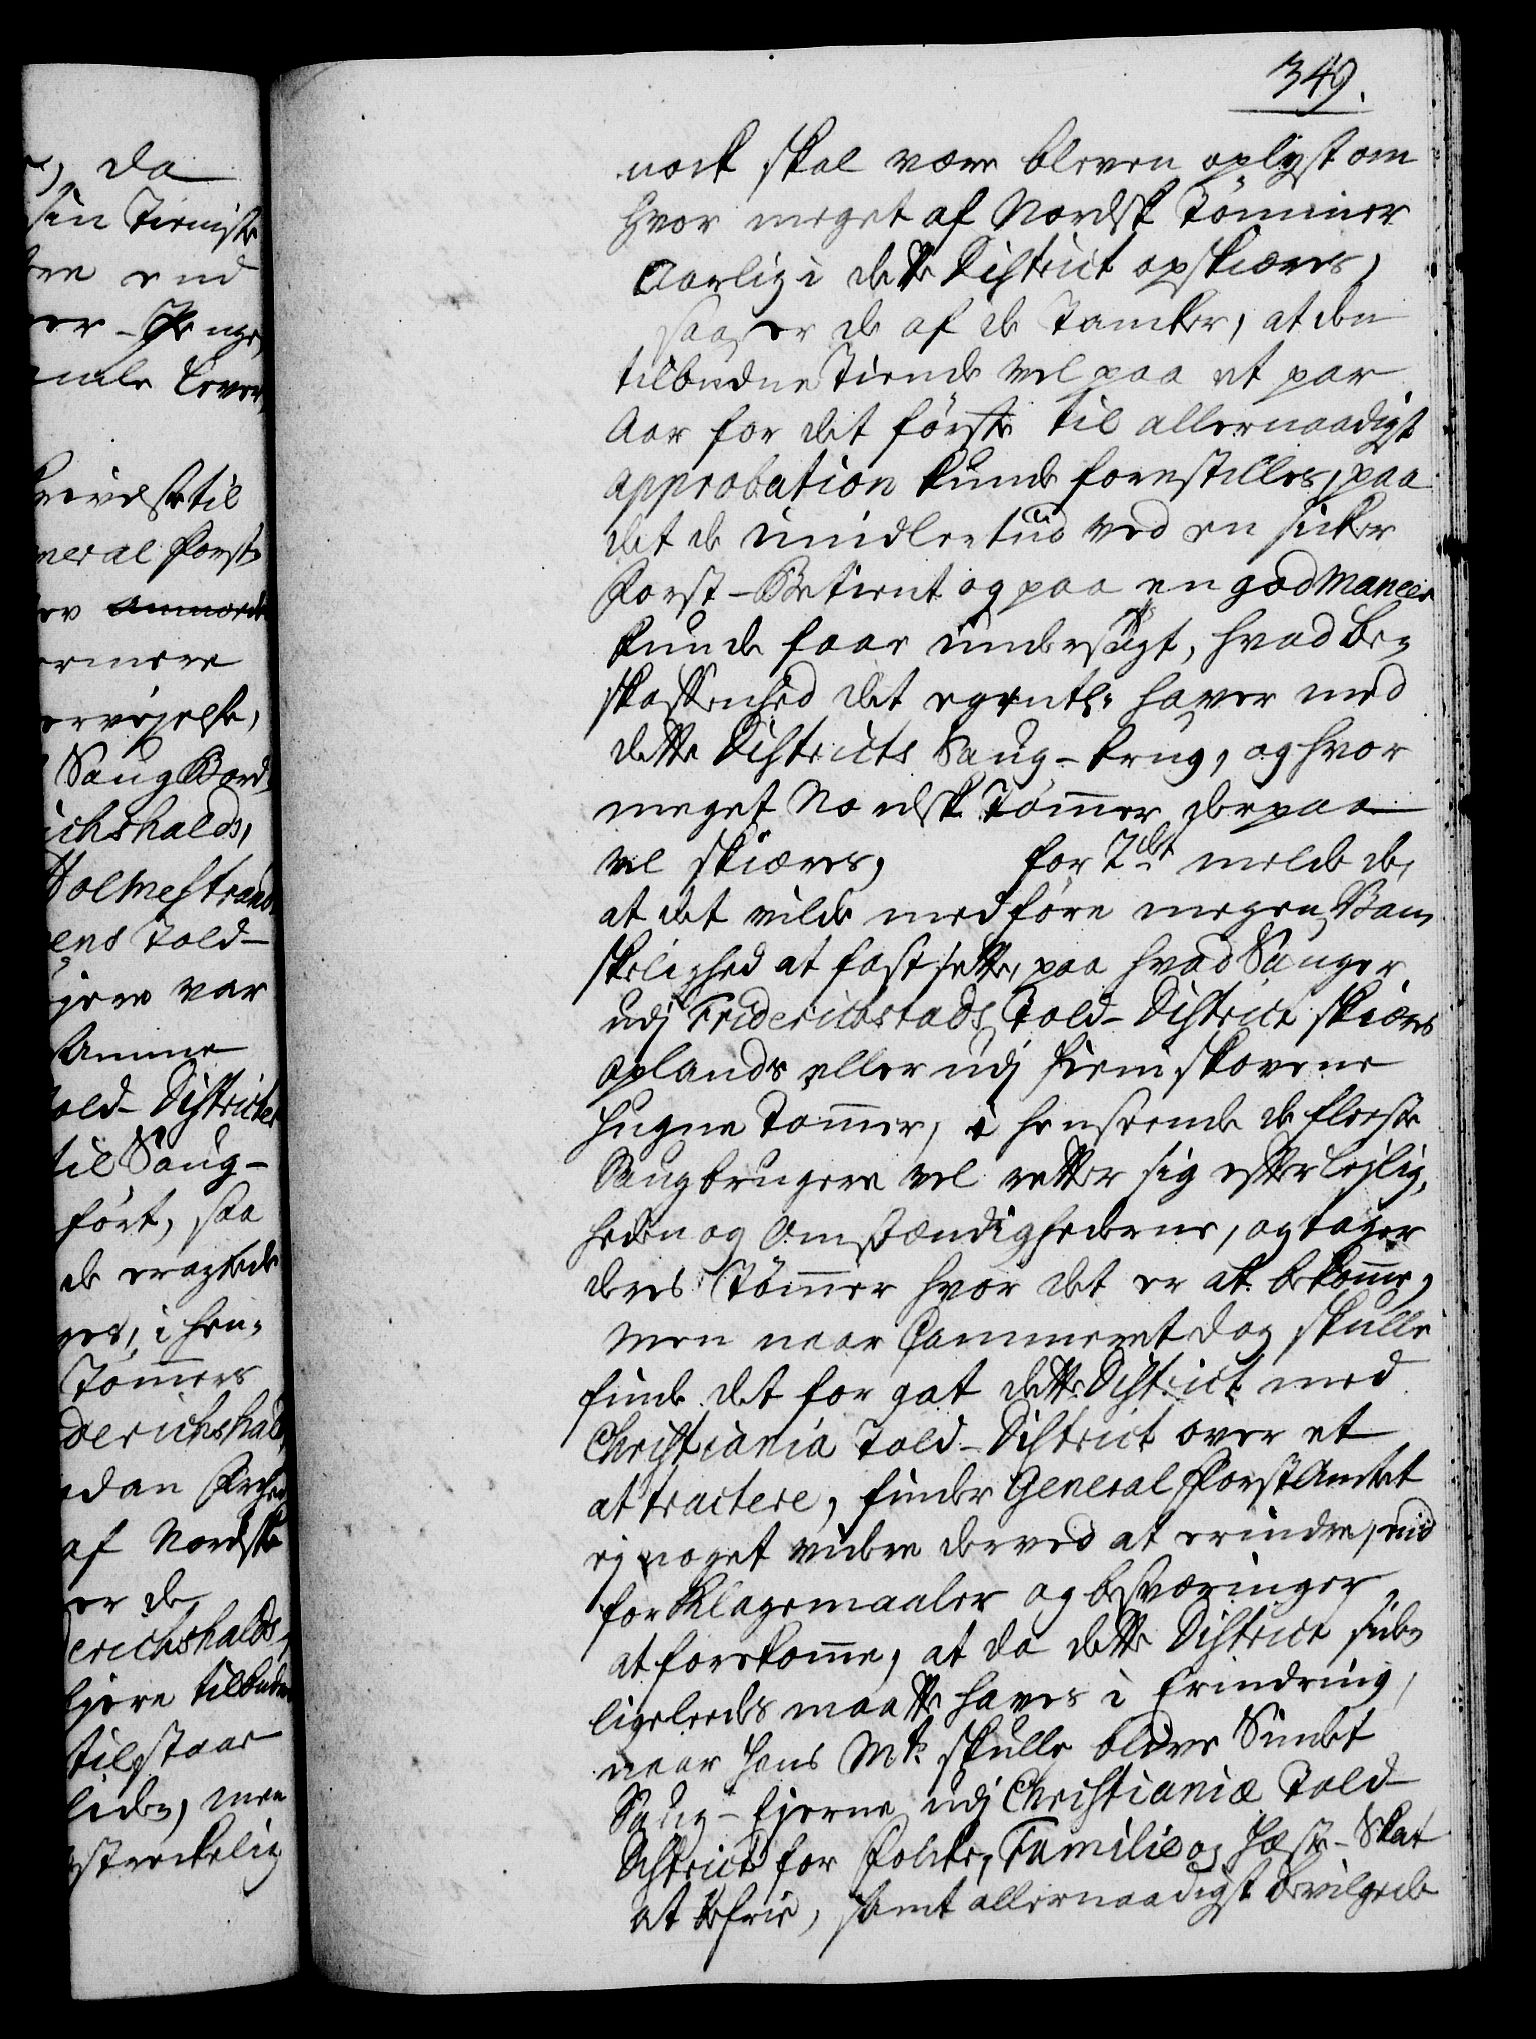 349.
nock skal være bleven oplyst om
hvor meget af Nordsk Tömmer
Aarlig i dette District opskiæres,
saa er de af de Tancker, at den
tilbudne Tiende vel paa et par
Aar for det förste til allernaadigst
approbation kunde forestilles, paa
det de imidlertiid ved en sicker
Forst-Betient og paa en god Maneer
kunde faae undersögt, hvad be-
skaffenhed det egentl: haver med
dette Districts Saug-brug, og hvor
meget Nordsk Tömmer derpaa
vel skiæres, for 7de melde de,
at det vilde medföre megen Van-
skelighed at fastsette, paa hvad Sauger
udj Friderichstads Told-District skiæres
Oplands eller udj hiemskovene
hugne Tömmer, i henseende de fleeste
Saugbrugere vel retter sig efter lejlig-
heden og Omstændighederne, og tager
deres Tömmer hvor det er at bekomme,
Men naar Cammeret dog skulle
finde det for got dette District med
Christiania Told-District over et
at tractere, finder General Forst Amtet
ej noget videre derved at erindre, end
for Klagemaaler og besværinger
at forekomme, at da dette District siden
ligeleedes maatte haves i Erindring,
naar Hans Mts skulle blive Sindet
Saug-Ejerne udj Christianiæ Told-
District for Folke, Familie og Hæste-Skat
at befrie, samt allernaadigst bevilgede
da
sin Tieniste
end
til
neral Forst
Saug Bord
ichshalds,
Holmestrand
ens Told-
jere var
samme
old-Districter
til Saug-
fört, saa
de eragtede
ges, i hen-
Tömmers
derichshald
dan
af Nordske
er de
erichshalds,
Ejere tilbuden
tilstaar
liden, men
strekelig